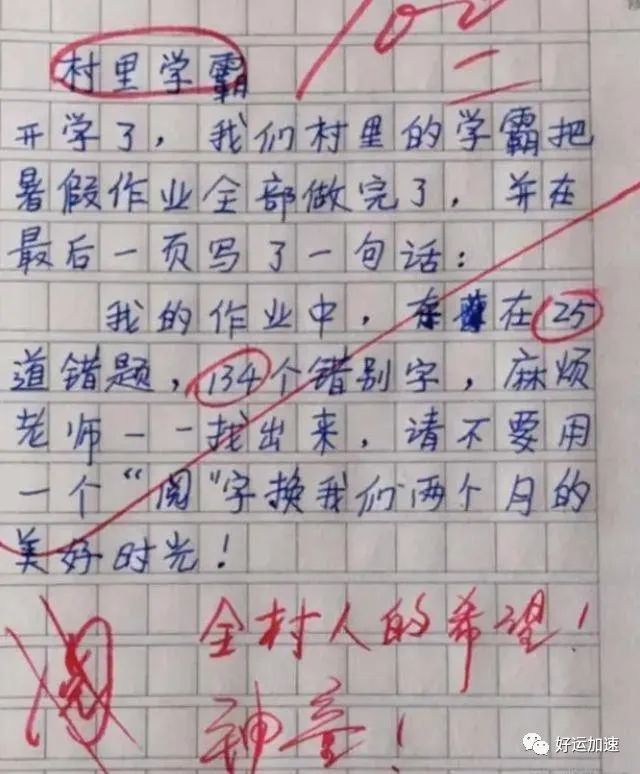 100
村里学霸
开学了，我们村里的学霸把
暑假作业全部做完了，并在
最后一页写了一句话：
我的作业中，在25
道错题，134个错别字，麻烦
老师一一找出来，请不要用
一个“阅”字换我们两个月的
美好时光！
阅
全村人的希望！
神童！
好运加速